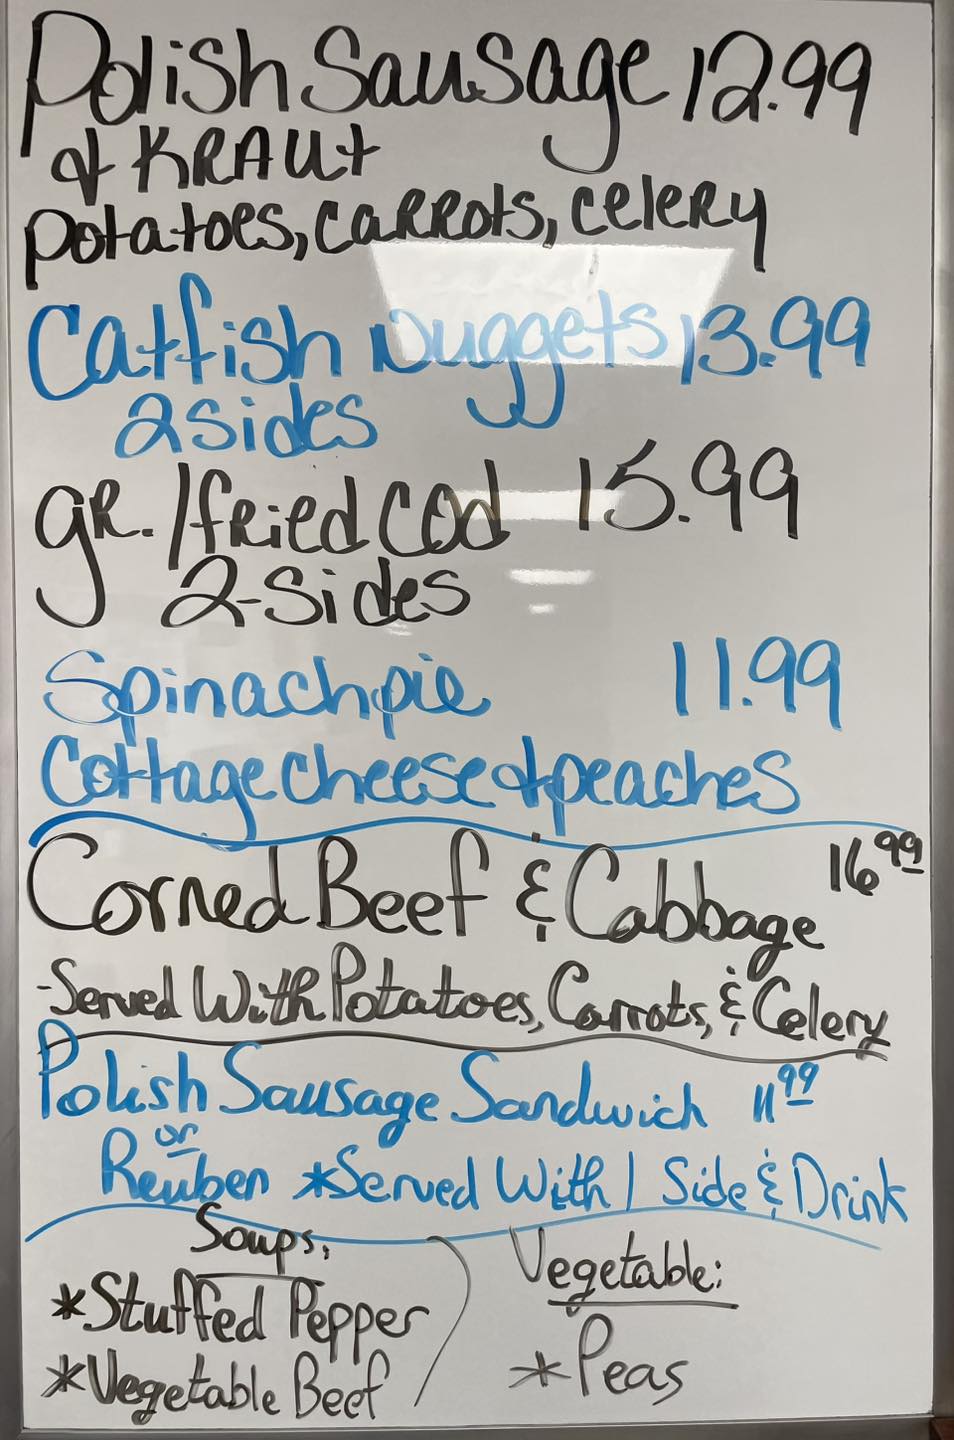 Polish Sausage 12.99
& KRAUt
potatoes, CARROts, celeRy
Catfish Nuggets 13.99
2 sides
gR./fRied cod 15.99
2-Sides
Spinach pie 11.99
Cottage cheese & peaches
Corned Beef & Cabbage 16.99
-Served With Potatoes, Carrots, & Celery
Polish Sausage Sandwich 11.99
or
Reuben *Served With 1 Side & Drink
Soups:
*Stuffed Pepper
*Vegetable Beef
Vegetable:
*Peas